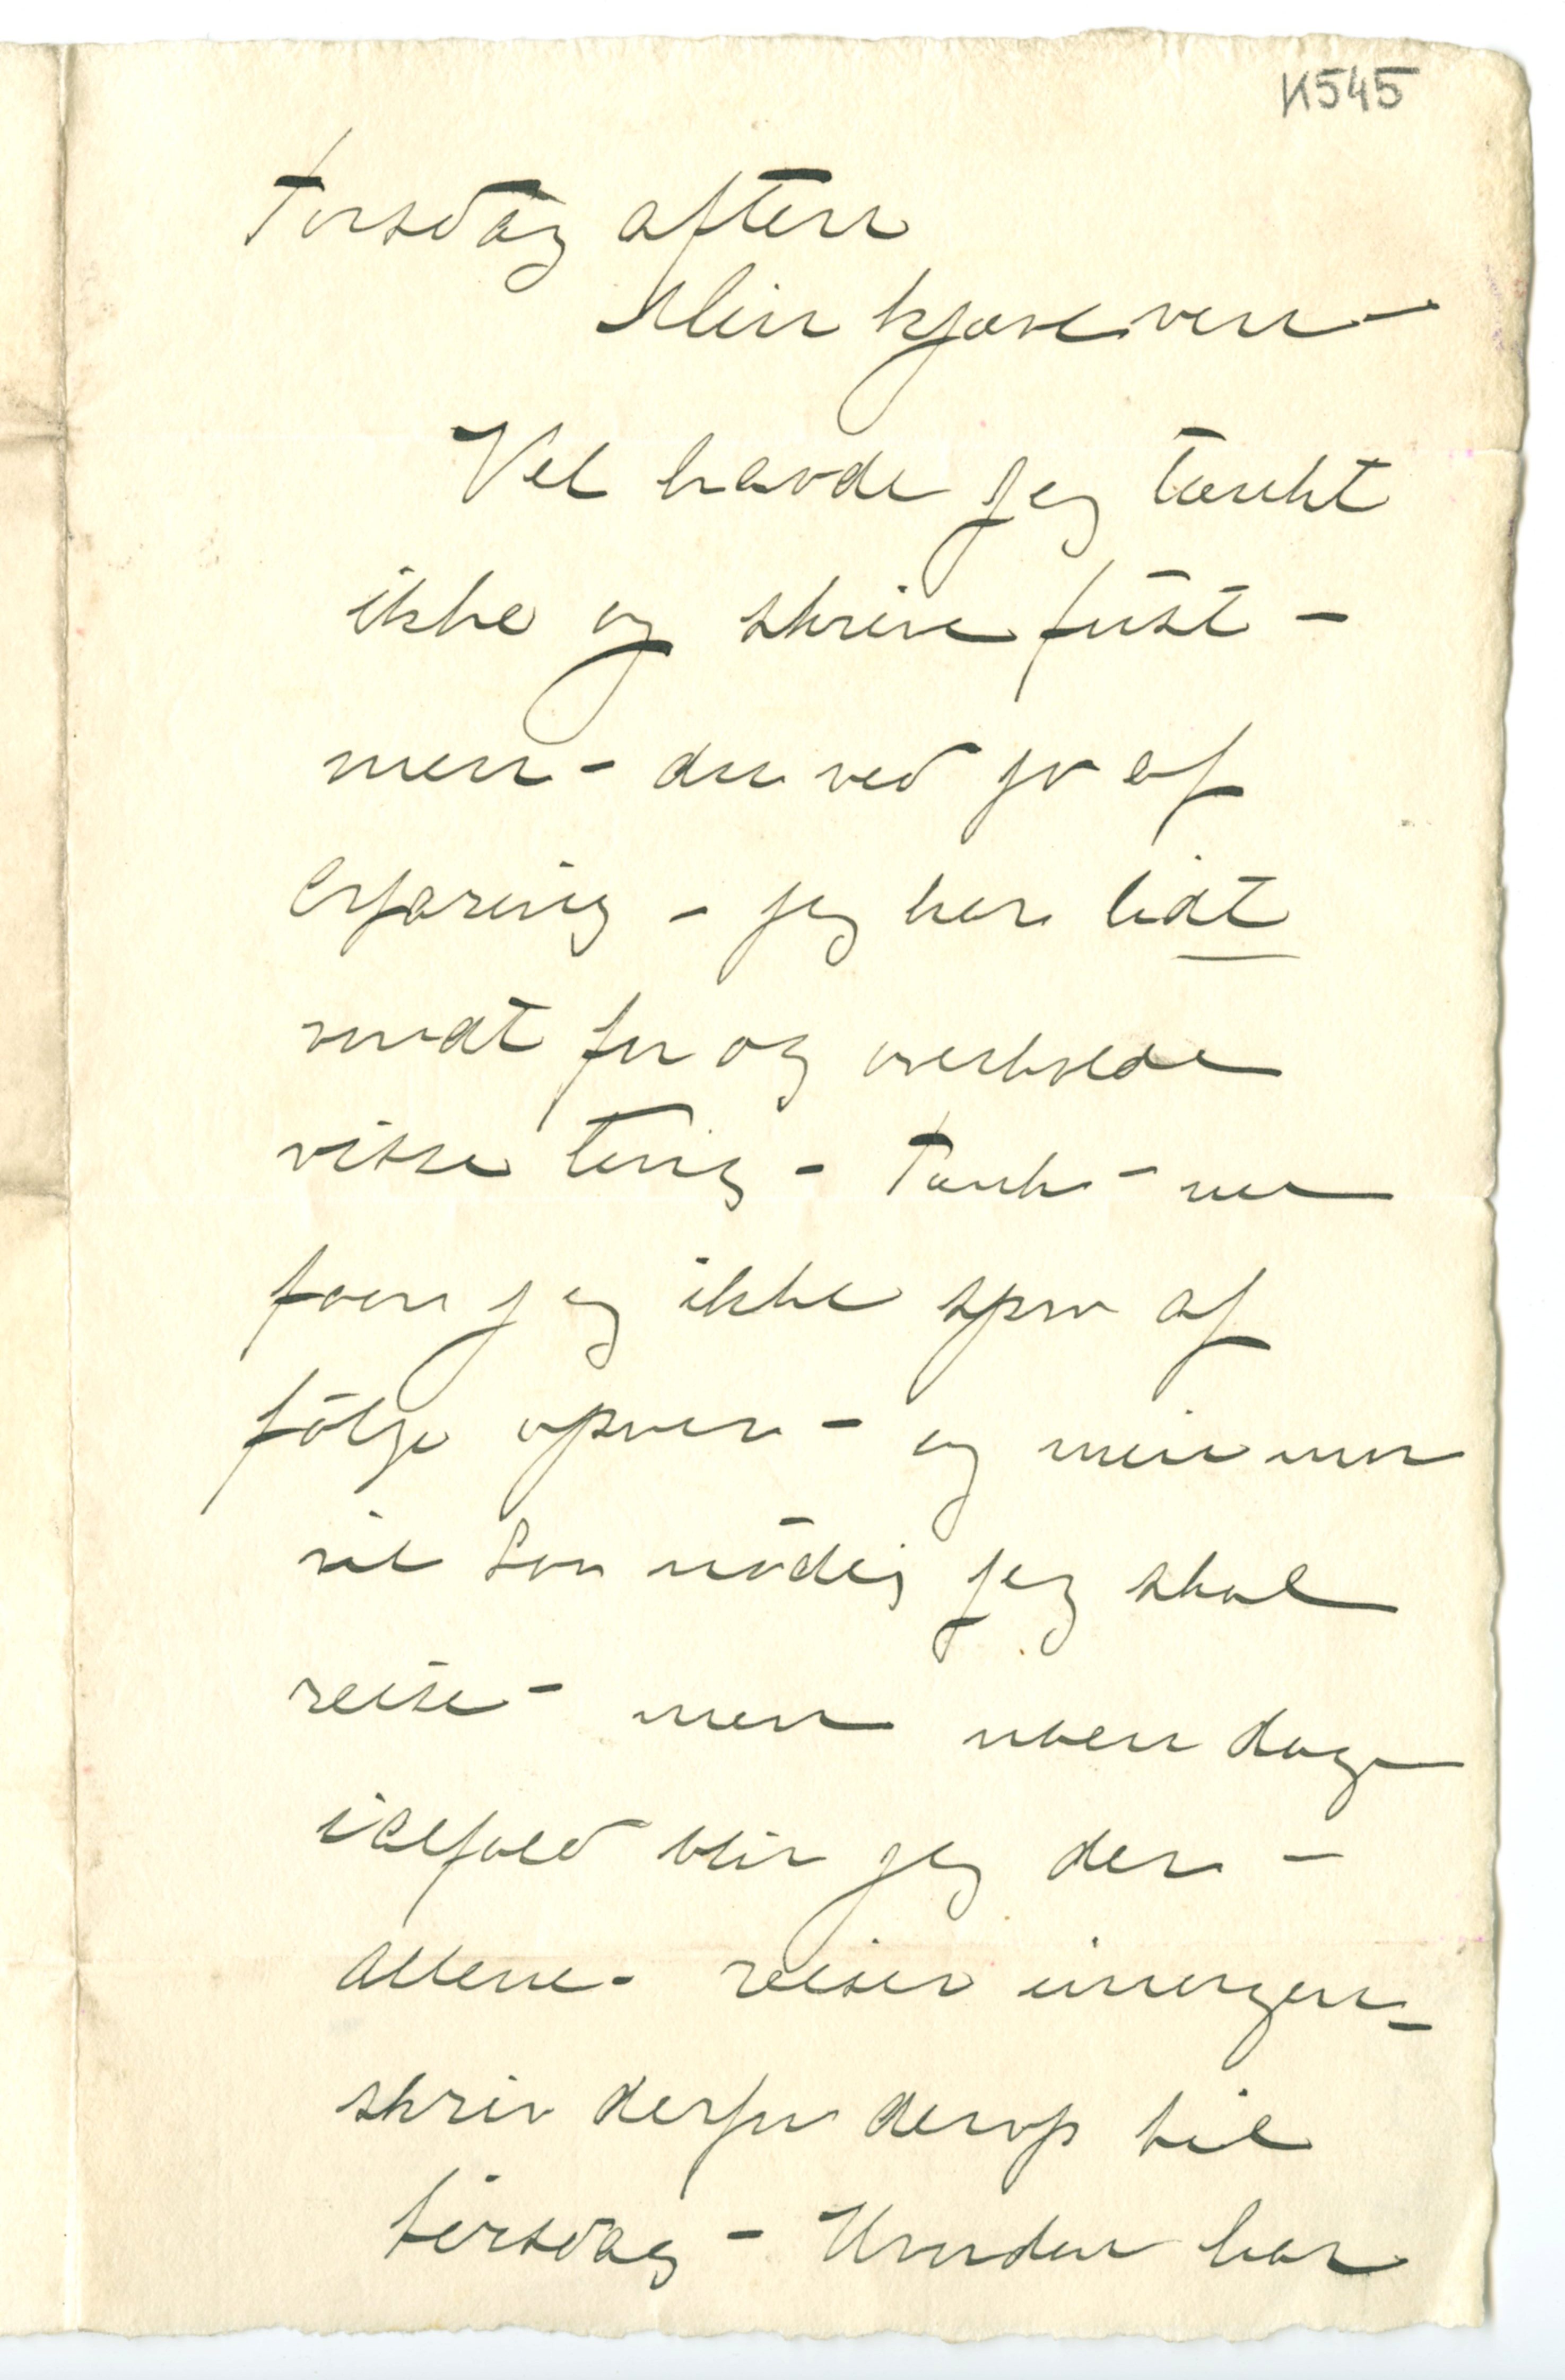 K545
Torsdag aften
Min kjære ven –
Vel havde jeg tænkt
ikke og skrive først –
men – du ved jo af
erfaring – jeg har lidt
vondt for og overholde
visse ting – Tænk – nu
faar jeg ikke
følge – og min mor
vil saa nødig jeg skal
reise – men noen dage
ialfald blir jeg der –
allene – reiser imorgen –
skriv derfor derop til
tirsdag – Hvordan har